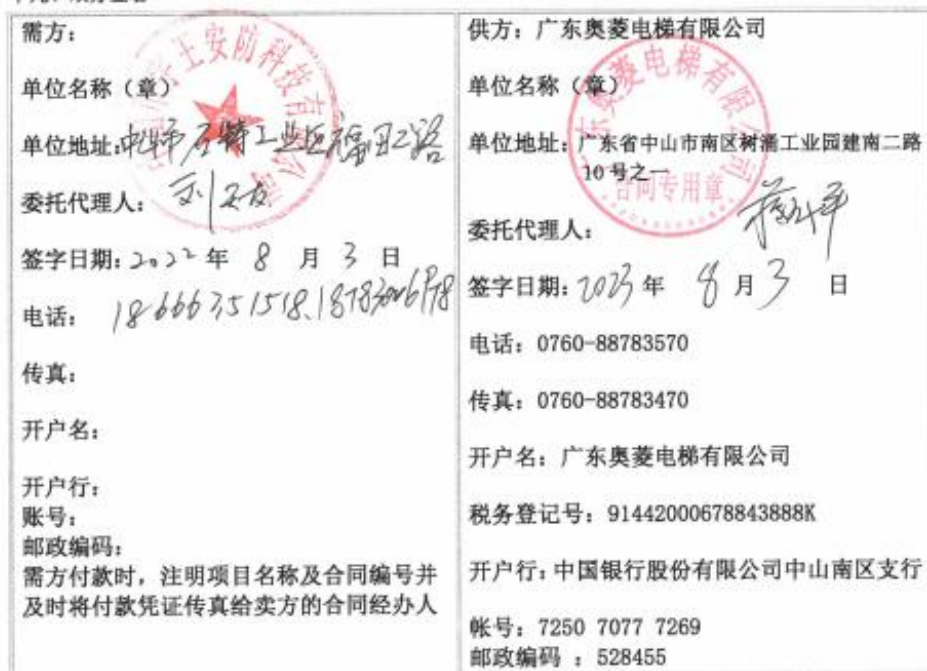 需方：
单位名称（章）
单位地址：
委托代理人：
签字日期：2022年 8 月 3 日
电话：18666351518、
传真：
开户名：
开户行：
账号：
邮政编码：
需方付款时，注明项目名称及合同编号并
及时将付款凭证传真给卖方的合同经办人
士安防科技有 公司
供方：广东奥菱电梯有限公司
单位名称（章）
单位地址：广东省中山市南区树涌工业园建南二路
10号之一
委托代理人：
签字日期：2023年 8 月 3 日
电话：0760-88783570
传真：0760-88783470
开户名：广东奥菱电梯有限公司
税务登记号：91442000678843888K
开户行：中国银行股份有限公司中山南区支行
帐号：7250 7077 7269
邮政编码 ：528455
东奥菱电梯有限公司
合同专用章